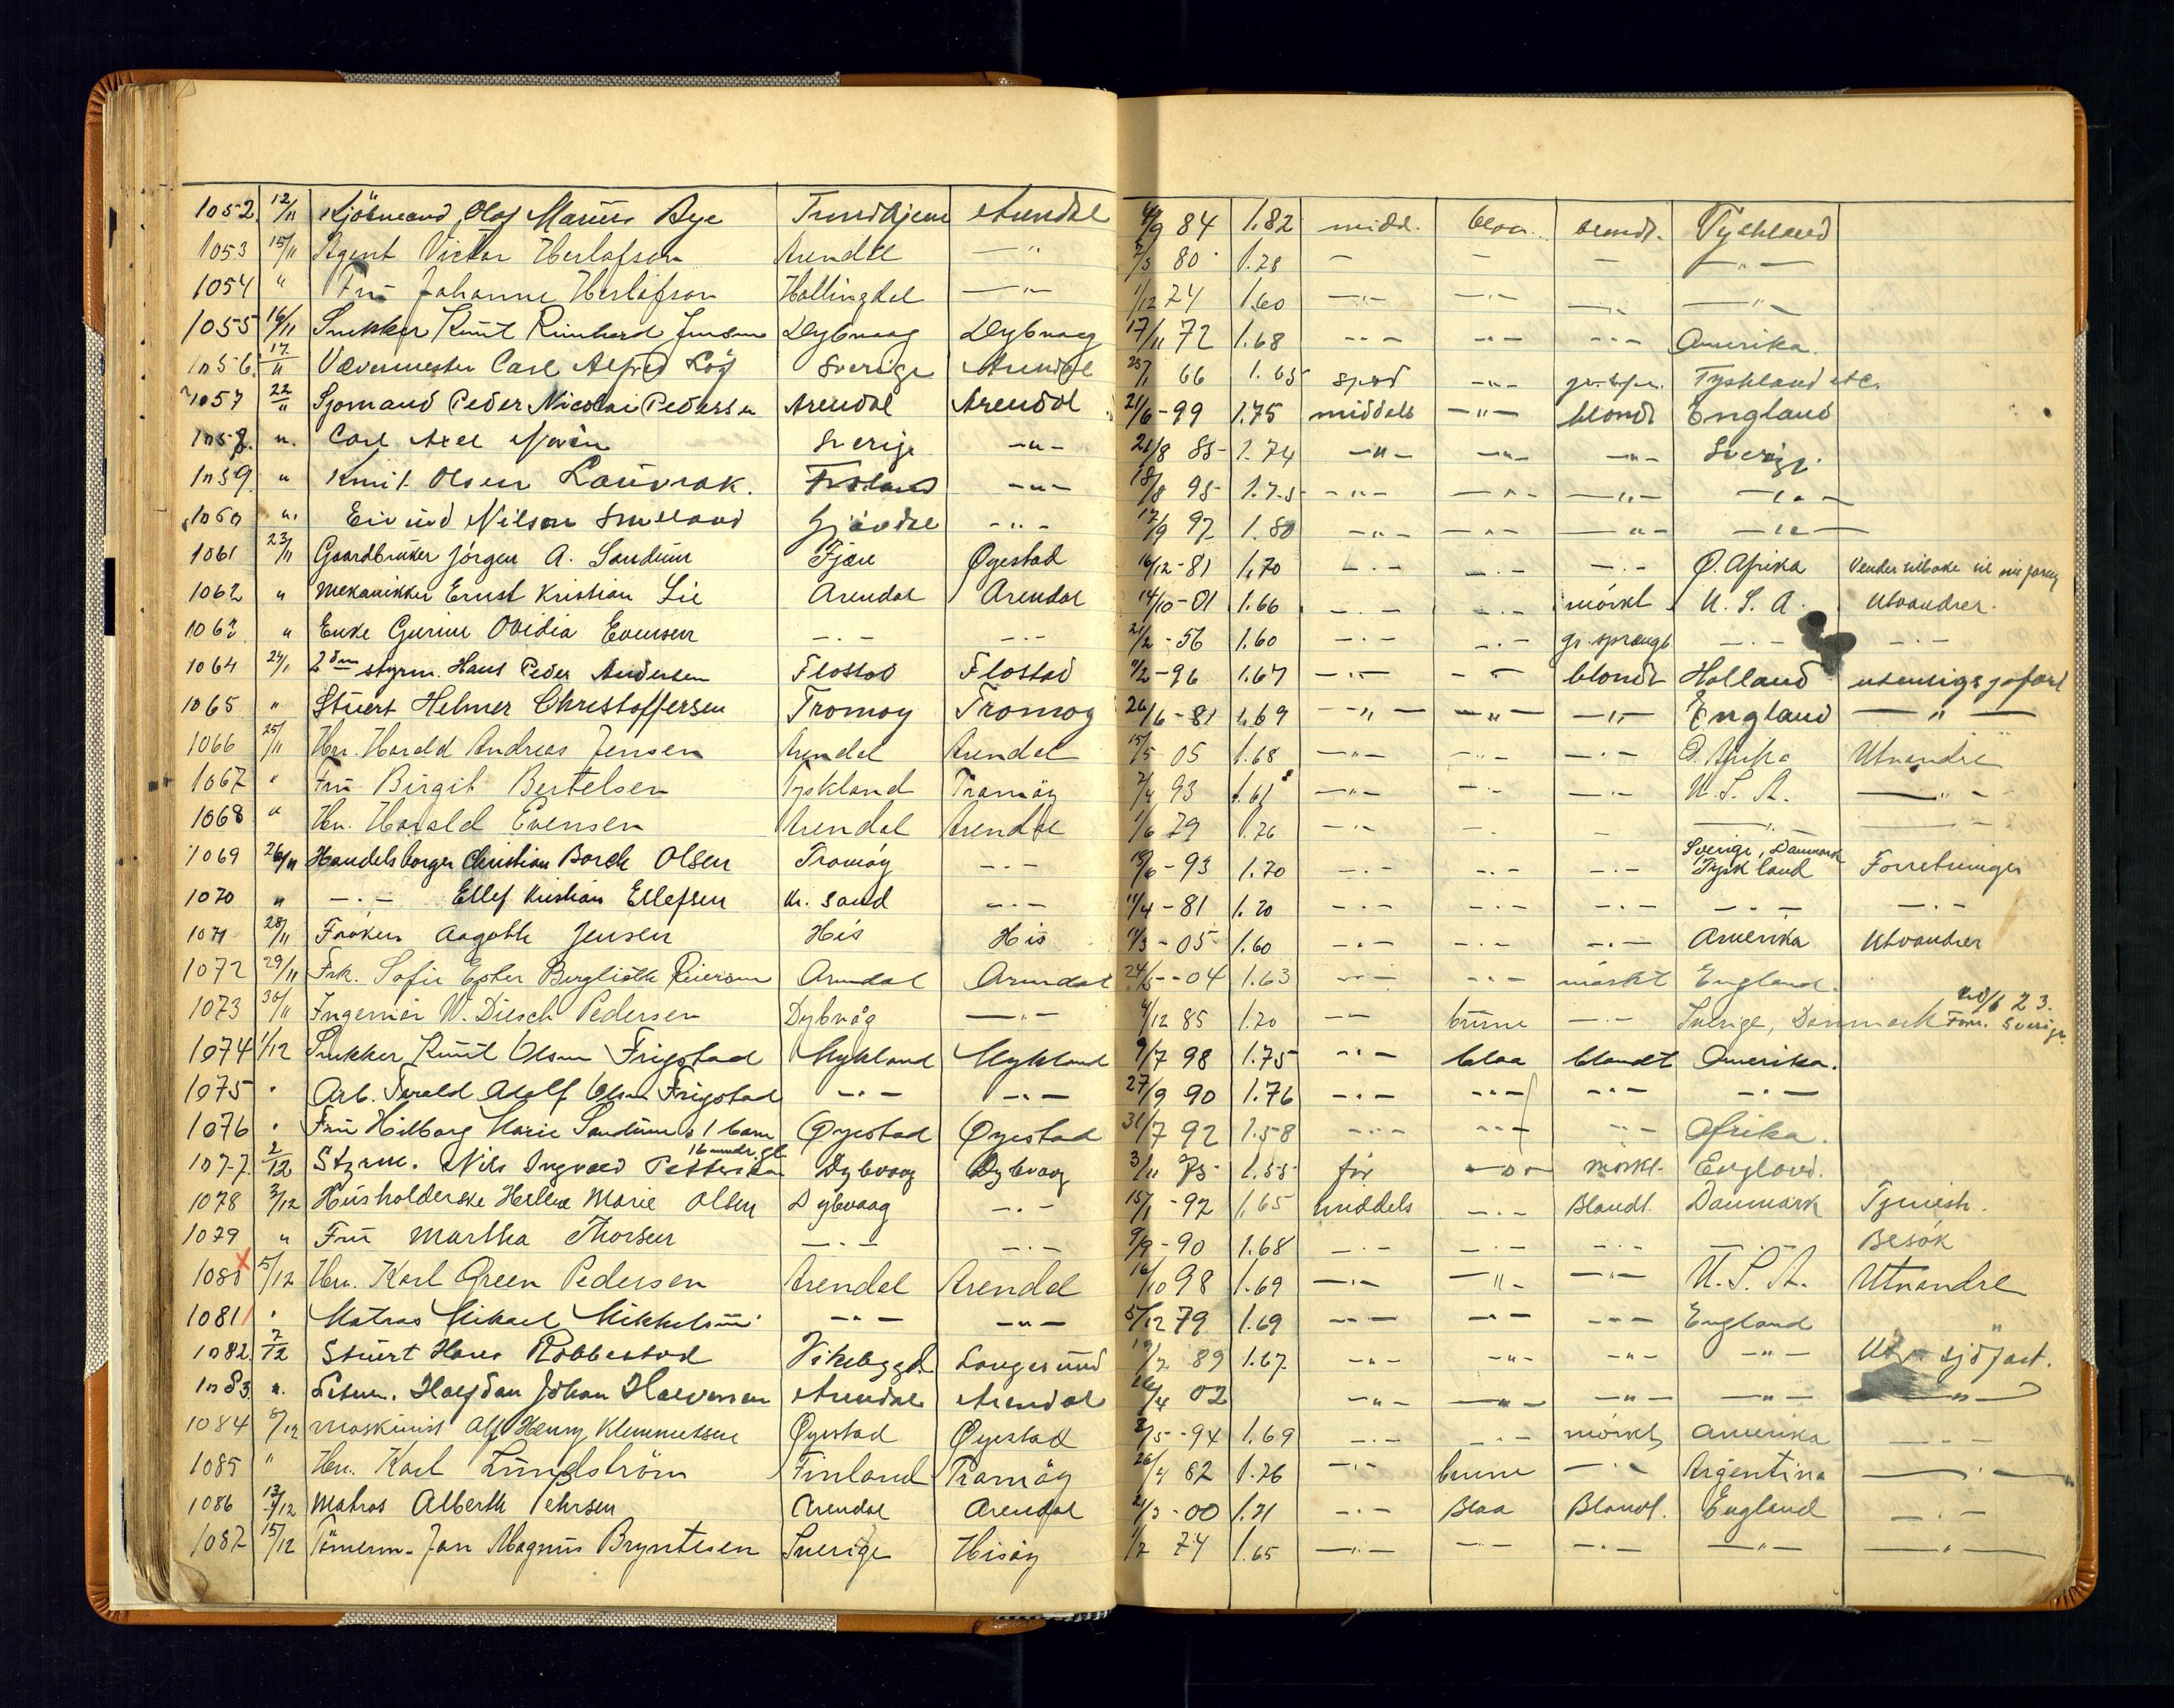 1052. 12/11 Kjöbmand Olaf Marius Aye Trondhjem Arendal 4/9 84 1.82 midd. blaa. blondt. Tyskland
1053 15/11 Agent Victor Herlofson Arendal —"— 2/5 80 1.78 — — — —"—
1054 " Frü Johanne Herlofson Hallingdal —"— 1/12 74 1.60 —"— —"— —"— —"—
1055 16/11 Snekker Knüt Reinhard Jensen Dybvaag Dybvaag 17/11 72 1.68 —"— —"— —"— Amerika.
1056. 17/11 Vævermester Carl Alfred Sverige Arendal 25/1 66 1.65 sped —"— Tyskland etc.
1057 22/11 Sjomand Peder Nicolai Pedersen Arendal Arendal 21/6-99 1.75 middels —"— blondt England
1058. " Carl Axel Sverige —"— 21/8 85 1.74 —"— —"— —"— Sverige.
1059. " Knut Olsen Lauvrak. Froland —"— 18/8 95 1.75 —"— —"— —"— —"—
1060 " Eivind Nilson Smeland Gjövdal —"— 12/9 97 1.80 —"— —"— —"— —"—
1061 23/11 Gaardbruker Jörgen A. Sandum Fjære Øyestad 16/12-81 1,70 —"— —"— —"— Ø. Afrika Vender tilbake til
1062 " Mekanikker Ernst Kristian Lie Arendal Arendal 14/10-01 1.66 —"— —"— mörkt U. S. A. Utvandrer.
1063 " Enke Gurine Ovidia Evensen —"— —"— 21/2-56 1.60 —"— —"— gr. sprængt —"— —"—
1064 24/11 2den styrm. Hans Peder Andersen Flostad Flostad 11/2-96 1.67 —"— —"— blondt Holland utenrigs sjøfart
1065 " Stuert Helmer Christoffersen Tromøy Tromøy 26/6-81 1.69 —"— —"— —"— England —"—
1066 25/11 Hrr. Harald Andreas Jensen Arendal Arendal 15/5 05 1.68 —"— —"— —"— Utvandre
1067 " Frü Birgit Bertelsen Tyskland Tromöy 2/4 93 1.61 —"— —"— —"— U. S. A. —"—
1068 " Hrr. Harald Evensen Arendal Arendal 1/6 79 1.76 —"— —"— — —"— —"—
1069 26/11 Handelsborger Christian Borch Olsen Tromöy —"— 15/6-93 1.70 —"— —"— —"— Sverige, Danmark Tyskland Forretninger
1070 " —"— Ellef Kristian Ellefsen Kr. sand —"— 11/4-81 1.70 —"— —"— —"— —"— —"—
1071 28/11 Fröken Aagoth Jensen His His 11/3-05 1.60 —"— —"— —"— Amerika Utvandrer
1072 29/11 Frk. Sofie Ester Bergliöth Reierson Arendal Arendal 24/5-04 1.63 —"— —"— mörkt England.
1073 30/11 Ingeniör W. Diesch Pedersen Dybvåg —"— 4/12 85 1.70 —"— brune —"— Sverige, Danmark 6 23. Sverige
1074 1/12 Snekker Knüt Olsen Frigstad Mykland Mykland 9/7 98 1.75 —"— blaa blondt Amerika.
1075 " Arb. Torald Adolf Olsen Frigstad —"— —"— 27/9 90 1.76 —"— —"— —"— —"—
1076 " Frü Hilborg Marie Sandum & 1 barn Øyestad Øyestad 31/7 92 1.58 —"— —"— —"— Afrika.
16 mndr. gl.
1077. 2/12 Styrm. Nils Ingvald Pettersen Dybvaag Dybvaag 3/11 75 1.55 för —"— mörkt. England.
1078 3/12 Husholderske Hellene Marie Olsen Dybvaag —"— 15/1-92 1,65 middels —"— Blondt. Danmark Tjenest.
1079 " Frü Martha Thorsen —"— —"— 9/9-90 1.68 —"— —"— —"— —"— Besök
1080 x 5/12 Hrr. Karl Green Pedersen Arendal Arendal 16/10 98 1.69 —"— —"— —"— U. S. A. Utvandre
1081 / " Matros Mikael Mikkelsen —"— —"— 5/12 79 1.69 —"— —"— —"— England "
1082. 7/12 Stuert Hans Robbestad Vikebygd Langesund 19/2 89 1.67. —"— —"— —"— —"— sjöfart.
1083. " Halfdan Johan Halvorsen Arendal Arendal 16/4 02 —"— —"— —"— —"— —"—
1084 8/12 Maskinist Alf Henry Klemmetsen Øyestad Øyestad 3/5-94 1.69 —"— —"— mörkt Amerika —"—
1085 " Hrr. Karl Lundström Finland Tromöy 26/4 82 1.76 —"— brune —"— Argentina —"—
1086 13/12 Matros Alberth Pehrsen Arendal Arendal 21/3-00 1.71 —"— Blaa Blondt. England —"—
1087 15/12 Tömerm. Jan Magnus Bryntesen Sverige Hisöy 1/2 74 1.65 —"— —"— —"— —"— —"—